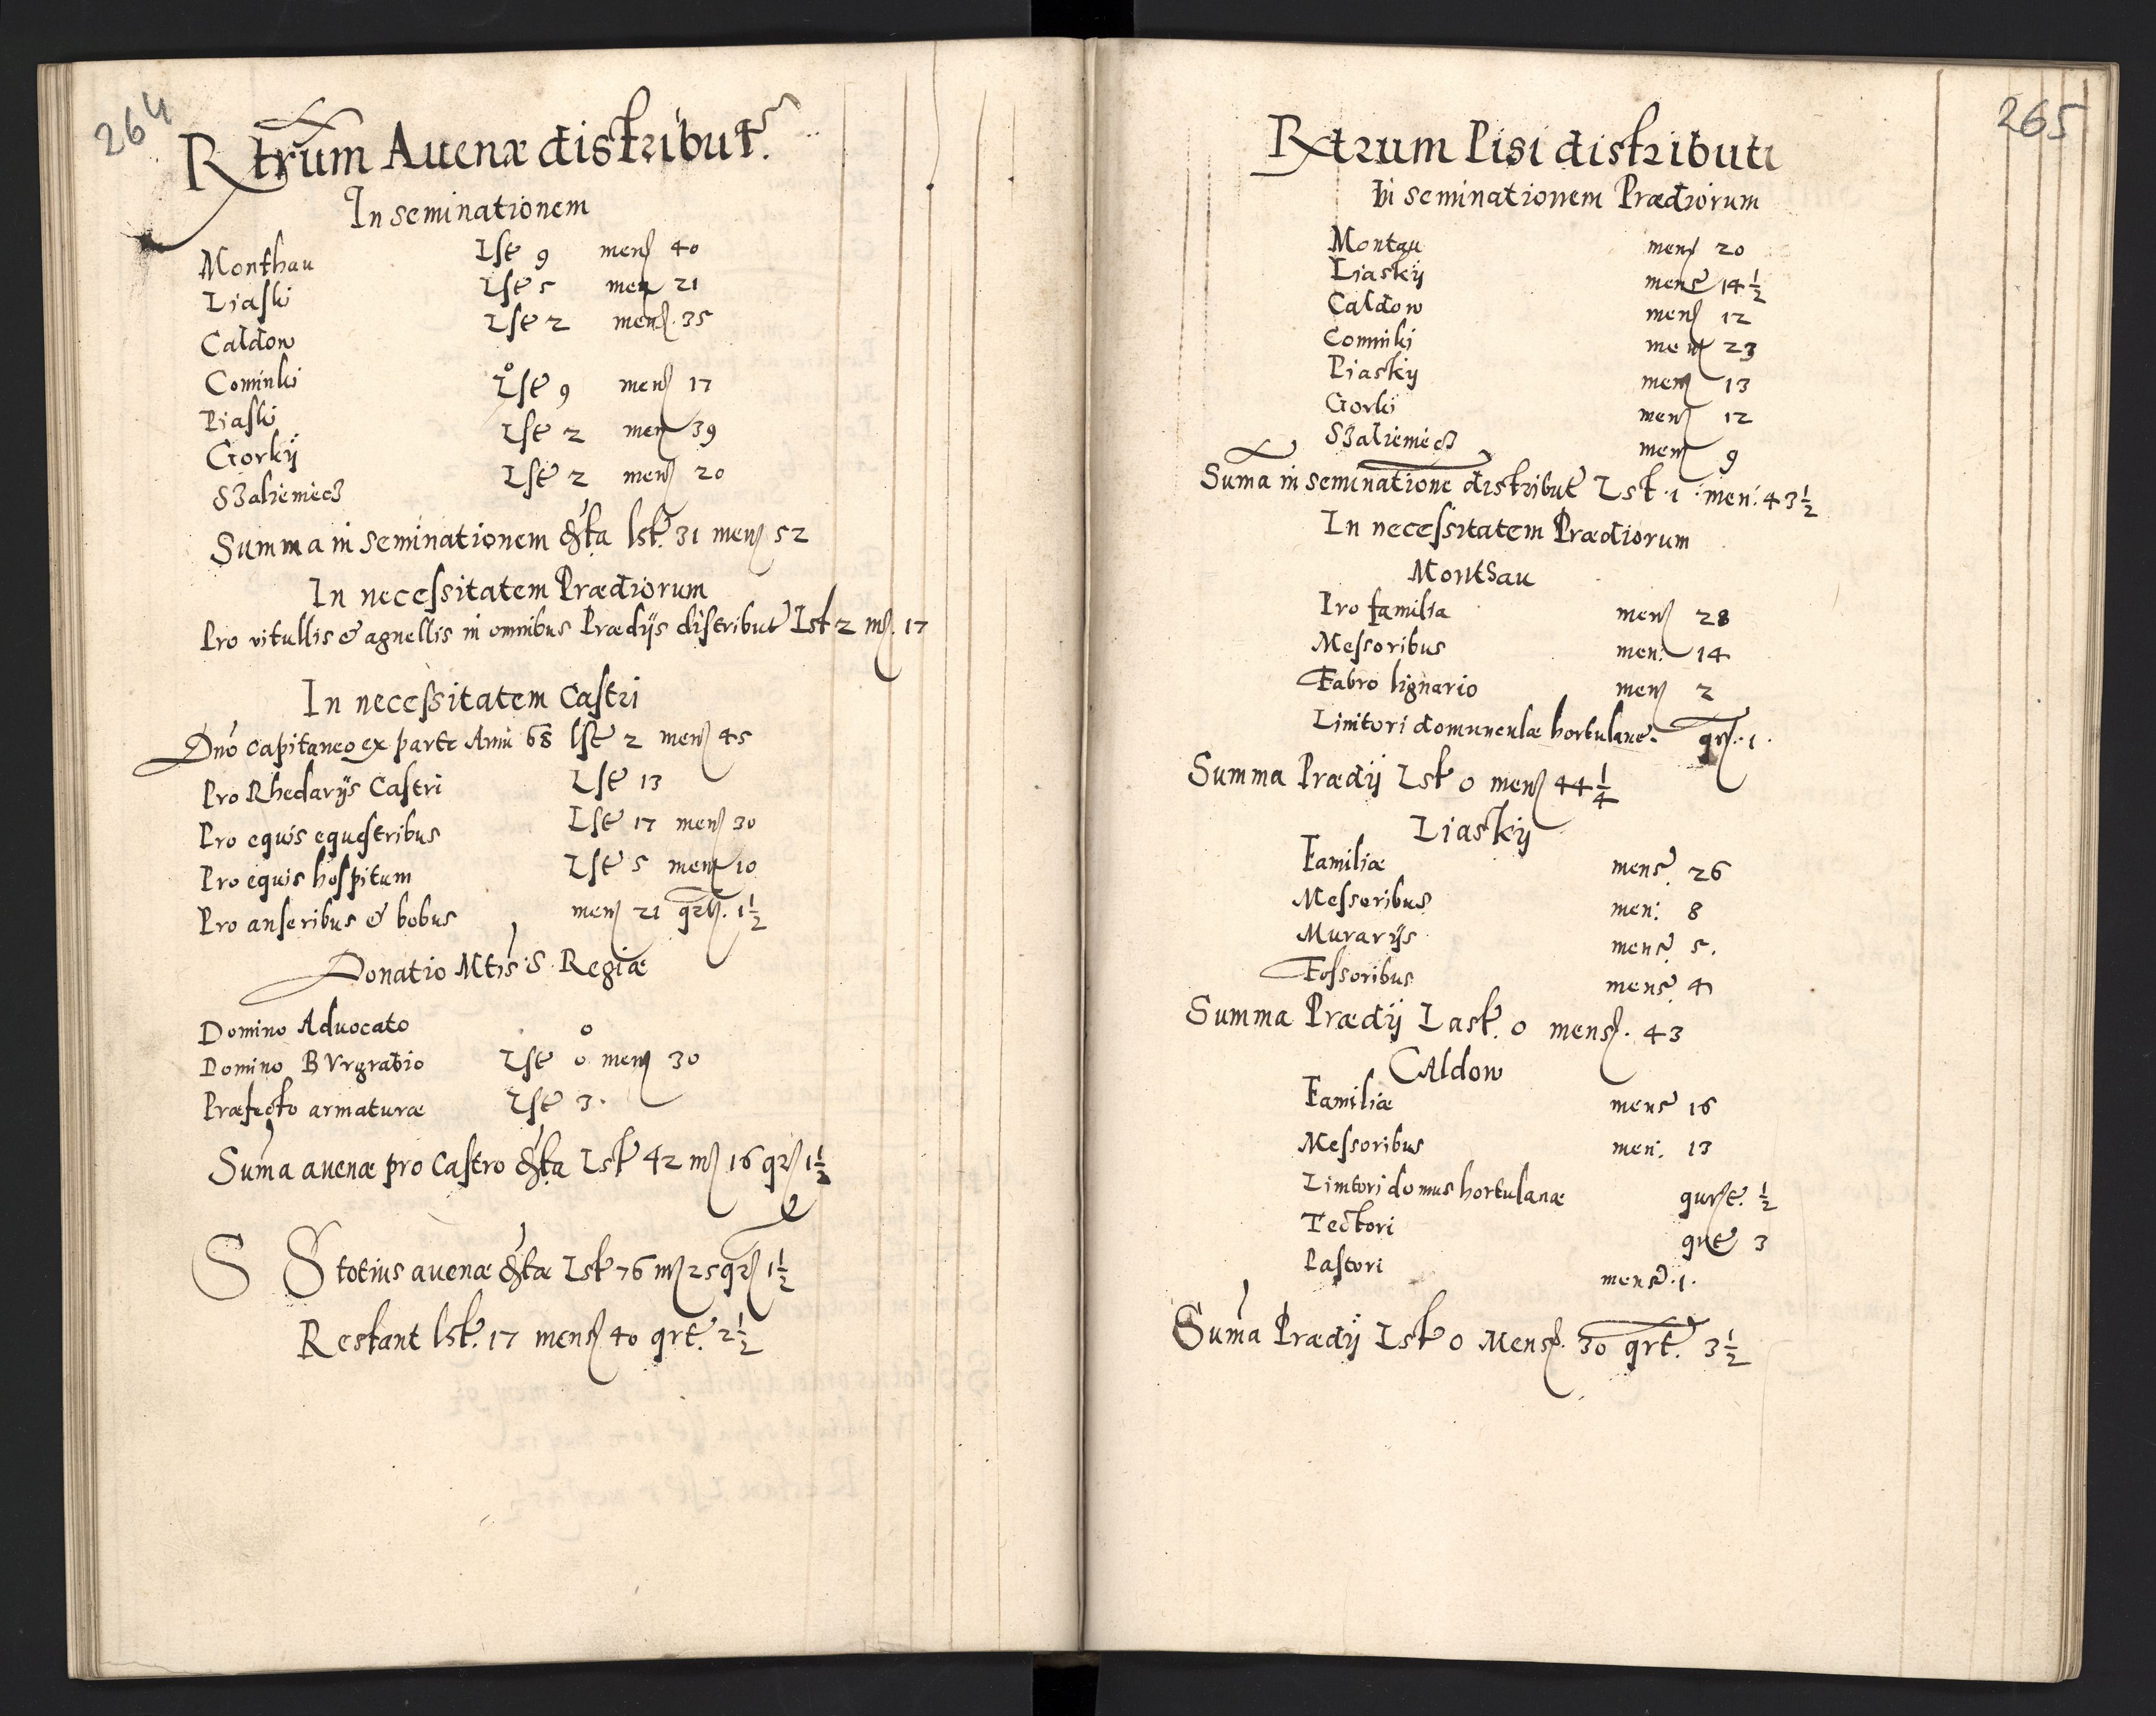 264
Rtrum Auenæ distribut.
In seminationem
Monthau Lst 9 mens 40
Liaski Lst 5 men 21
Caldow Lst 2 mens. 35
Cominki 0
Piaski Lst 9 mens 17
Gorkÿ Lst 2 men 39
Szaliemecz Lst 2 mens 20
Summa in seminationem dsta lst. 31 mens 52
In necessitatem Prædiorum
Pro vitullis & agnellis in omnibus Prædijs distribut Lst 2 ms. 17
In necessitatem Castri
Dno Capitaneo ex parte Anni 68 lst 2 mens 45
Pro Rhedarijs Castri Lst 13
Pro equis equestribus Lst 17 mens 30
Pro equis hospitum Lst 5 mens 10
Pro anseribus & bobus mens 21 qrts. 1½
Donatio Mtis S. Regiæ
Domino Aduocato 0
Domino BVrgrabio Lst 0 mens 30
Præfecto armaturæ Lst 3.
Suma auenæ pro Castro dsta Lst 42 ms 16 qrs 1½
S S totius auenæ dstæ Lst 76 ms 25 qrs 1½
Restant lst. 17 mens 40 qrt. 2½
265
Rtrum Pisi distributi
In seminationem Prædiorum
Montau mens 20
Liaskÿ mens 14½
Caldow mens 12
Cominki mens 23
Piasky mens 13
Gorki mens 12
Szaliemecz mens 9
Suma in seminatione distribut Lst. 1 men. 43½
In necessitatem Prædiorum
Monthau
Pro familia mens 28
Messoribus men: 14
Fabro lignario mens 2
Limitori domunculæ hortulanæ. qrs. 1.
Summa Prædij Lst 0 mens 44¼
Liaskÿ
Familiæ mens 26
Messoribus men: 8
Murarijs mens 5.
Fossoribus mens 4
Summa Prædij Last. 0 mens. 43
CAldow
Familiæ mens 16
Messoribus men: 13
Limtori domus hortulanæ qurt. ½
Tectori qrt 3
Pastori mens. 1.
Suma Prædij Lst 0 Mens. 30 qrt. 3½